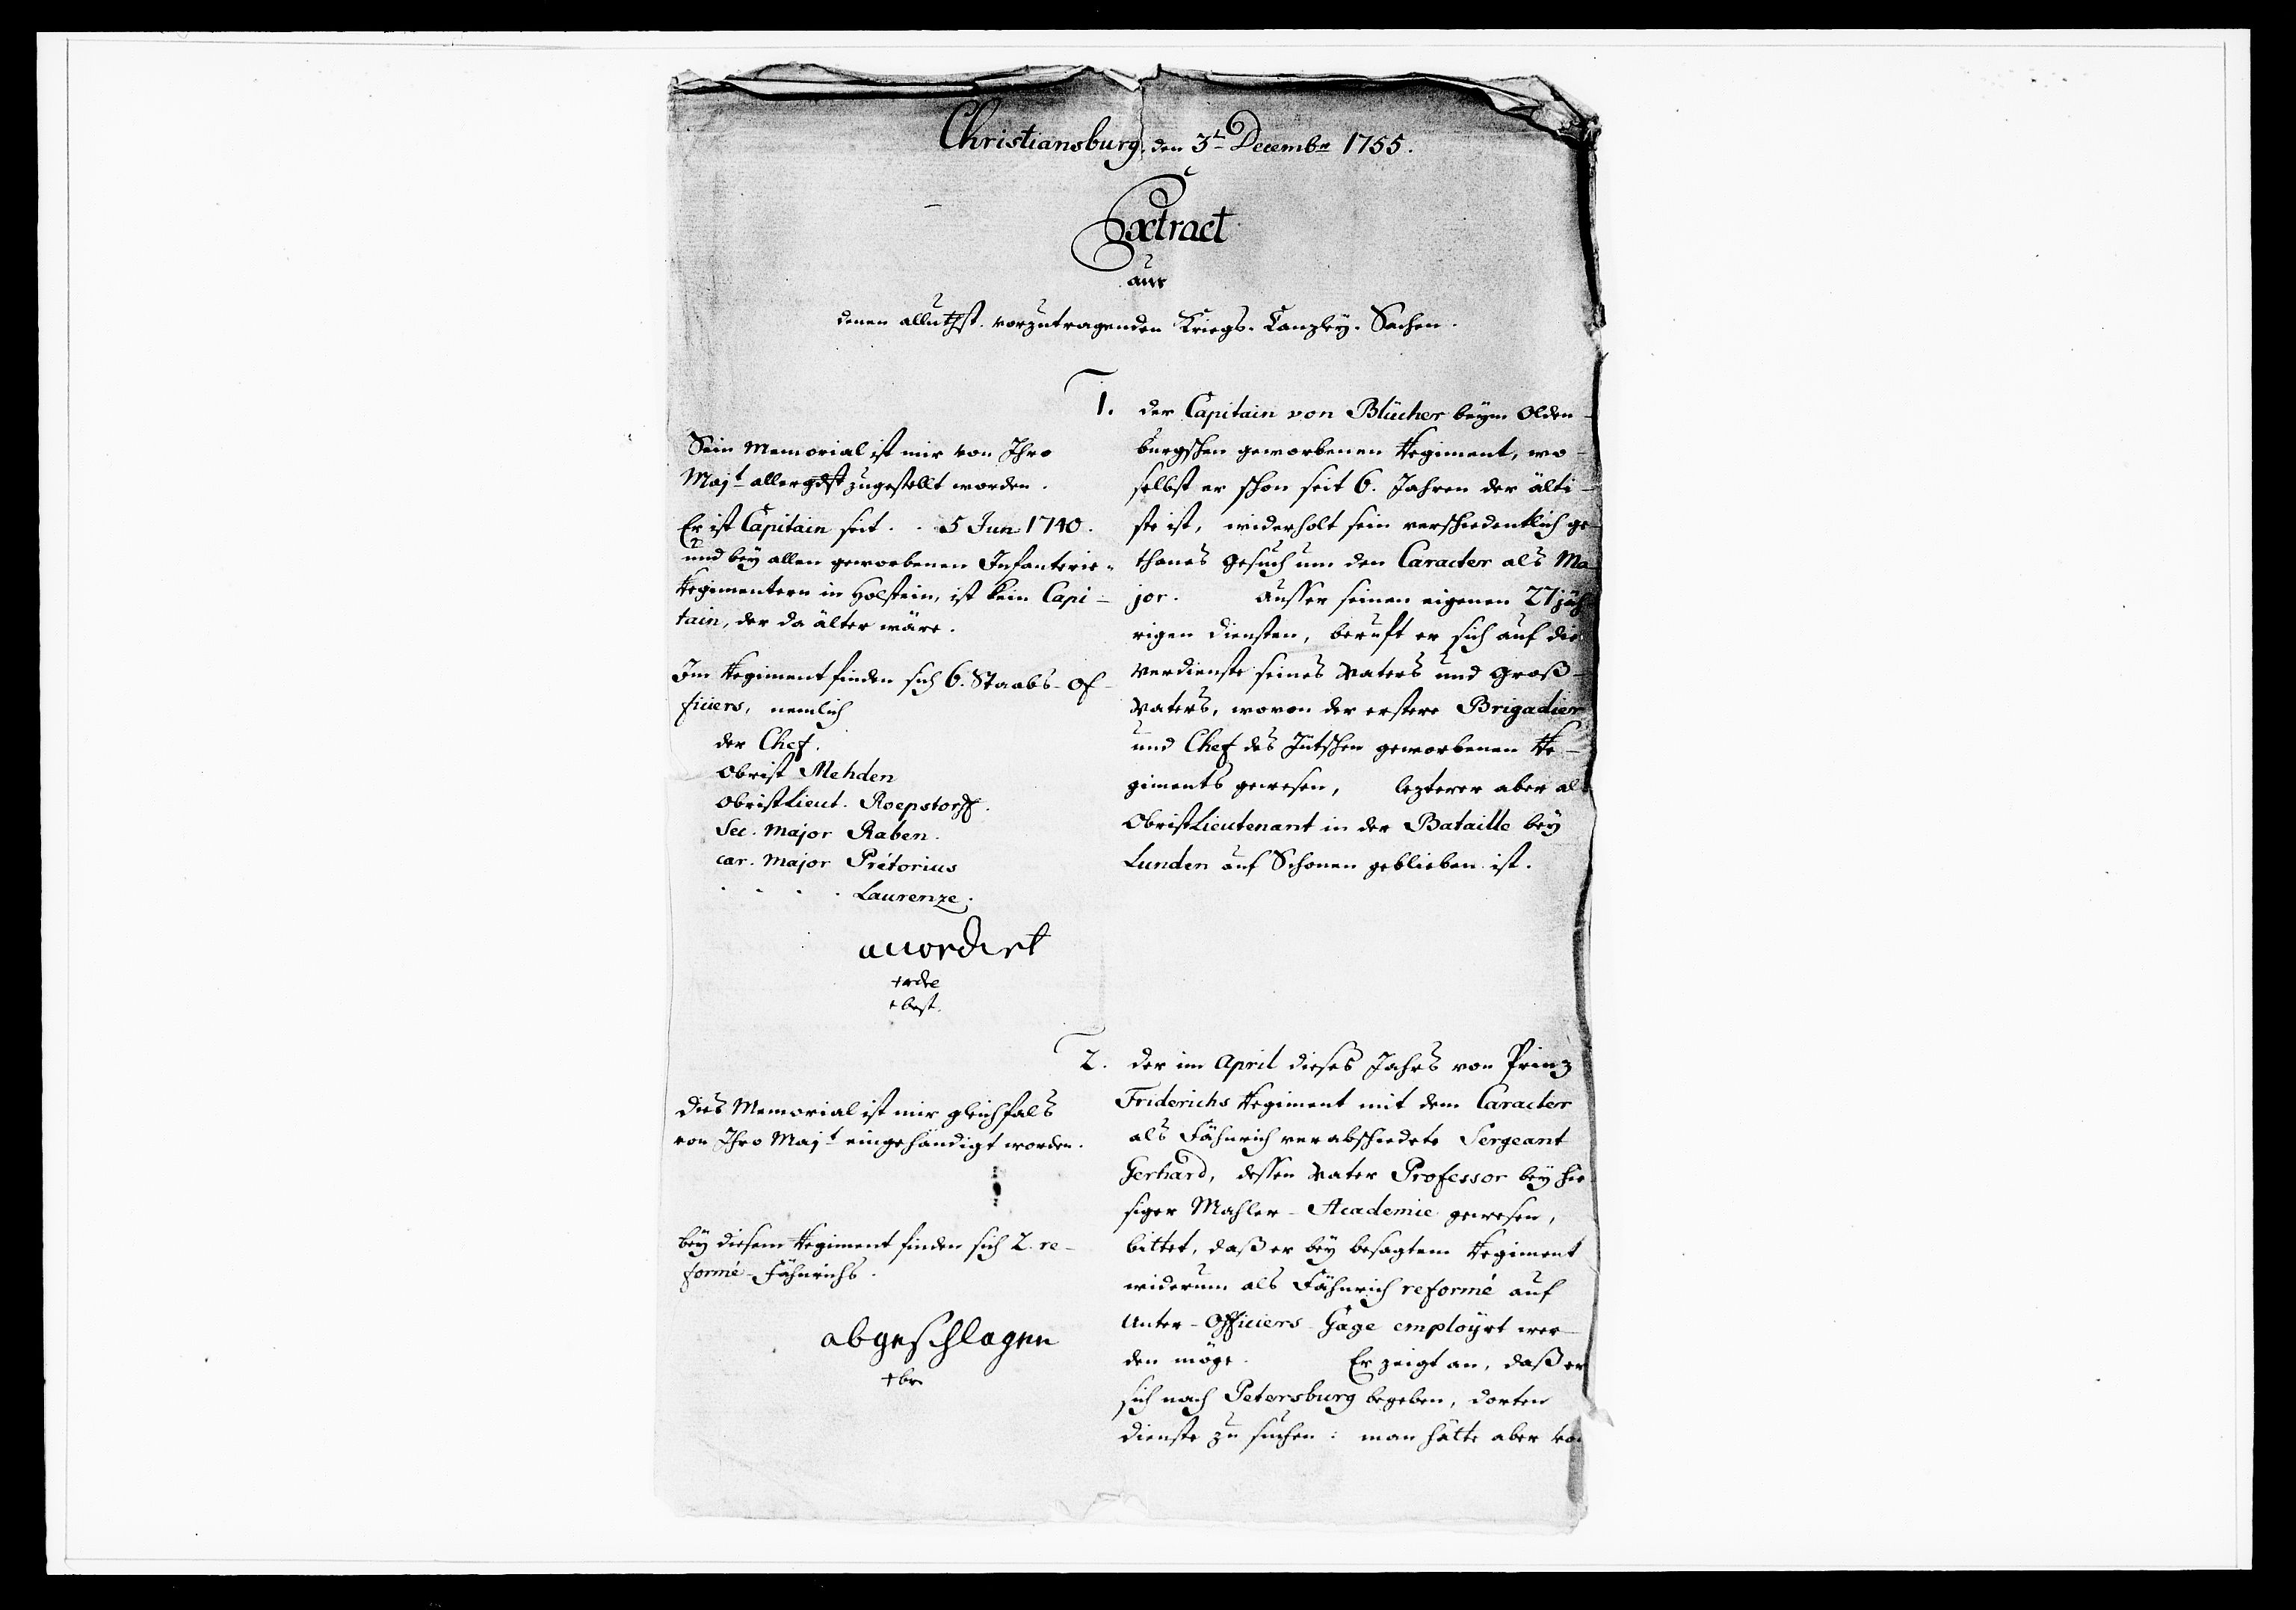 Christiansburg. den 3t Decembr 1755.
Extract
aus
denen alluthst. vorzutragenden Kriegs-Canzley-Sachen.
1. der Capitain von Blücher beym Olden-
burgschen geworbenen Regiment, wo-
selbst er schon seit 6. Jahren der älti-
ste ist, widerholt sein verschiedentlich ge-
thanes Gesuch um den Caracter als Ma-
jor. Ausser seinen eigenen 27 jäh-
rigen Diensten, beruft er sich auf die
Verdienste seines Vaters und Groß-
Vaters, wovon der erstere Brigadier
und Chef des Jütschen geworbenen Re-
giments gewesen, lezterer aber als
ObristLieutenant in der Bataille bey
Lunden auf Schonen geblieben ist.
Sein Memorial ist mir von Ihro
Majt allergdst zugestellt worden.
Er ist Capitain seit . . 5 Jun 1740.
und bey allen geworbenen Infanterie-
Regimentern in Holstein, ist kein Capi-
tain, der da älter wäre.
Im Regiment finden sich 6. Staabs-Of-
ficiers, nemlich
der Chef.
Obrist Mehden
ObristLieut. Roepstorff.
Sec. Major Raben.
car. Major Prétorius
. . . . Laurenze.
accordirt
+ ordre
+ best.
2. der im April dieses Jahrs von Prinz
Friderichs Regiment mit dem Caracter
als Fähnrich verabschiedete Sergeant
Gerhard, dessen Vater Professor bey hie-
siger Mahler-Academie gewesen,
bittet, daß er bey besagtem Regiment
widerum als Fähnrich reformé auf
Unter-Officiers-Gage employrt wer-
den möge. Er zeigt an, daß er
sich nach Petersburg begeben, dorten
Dienste zu suchen: man hätte aber von
Dies Memorial ist mir gleichfals
von Ihro Majt eingehändigt worden.
bey diesem Regiment finden sich 2. re-
formé-Fähnrichs.
abgeschlagen
+ br